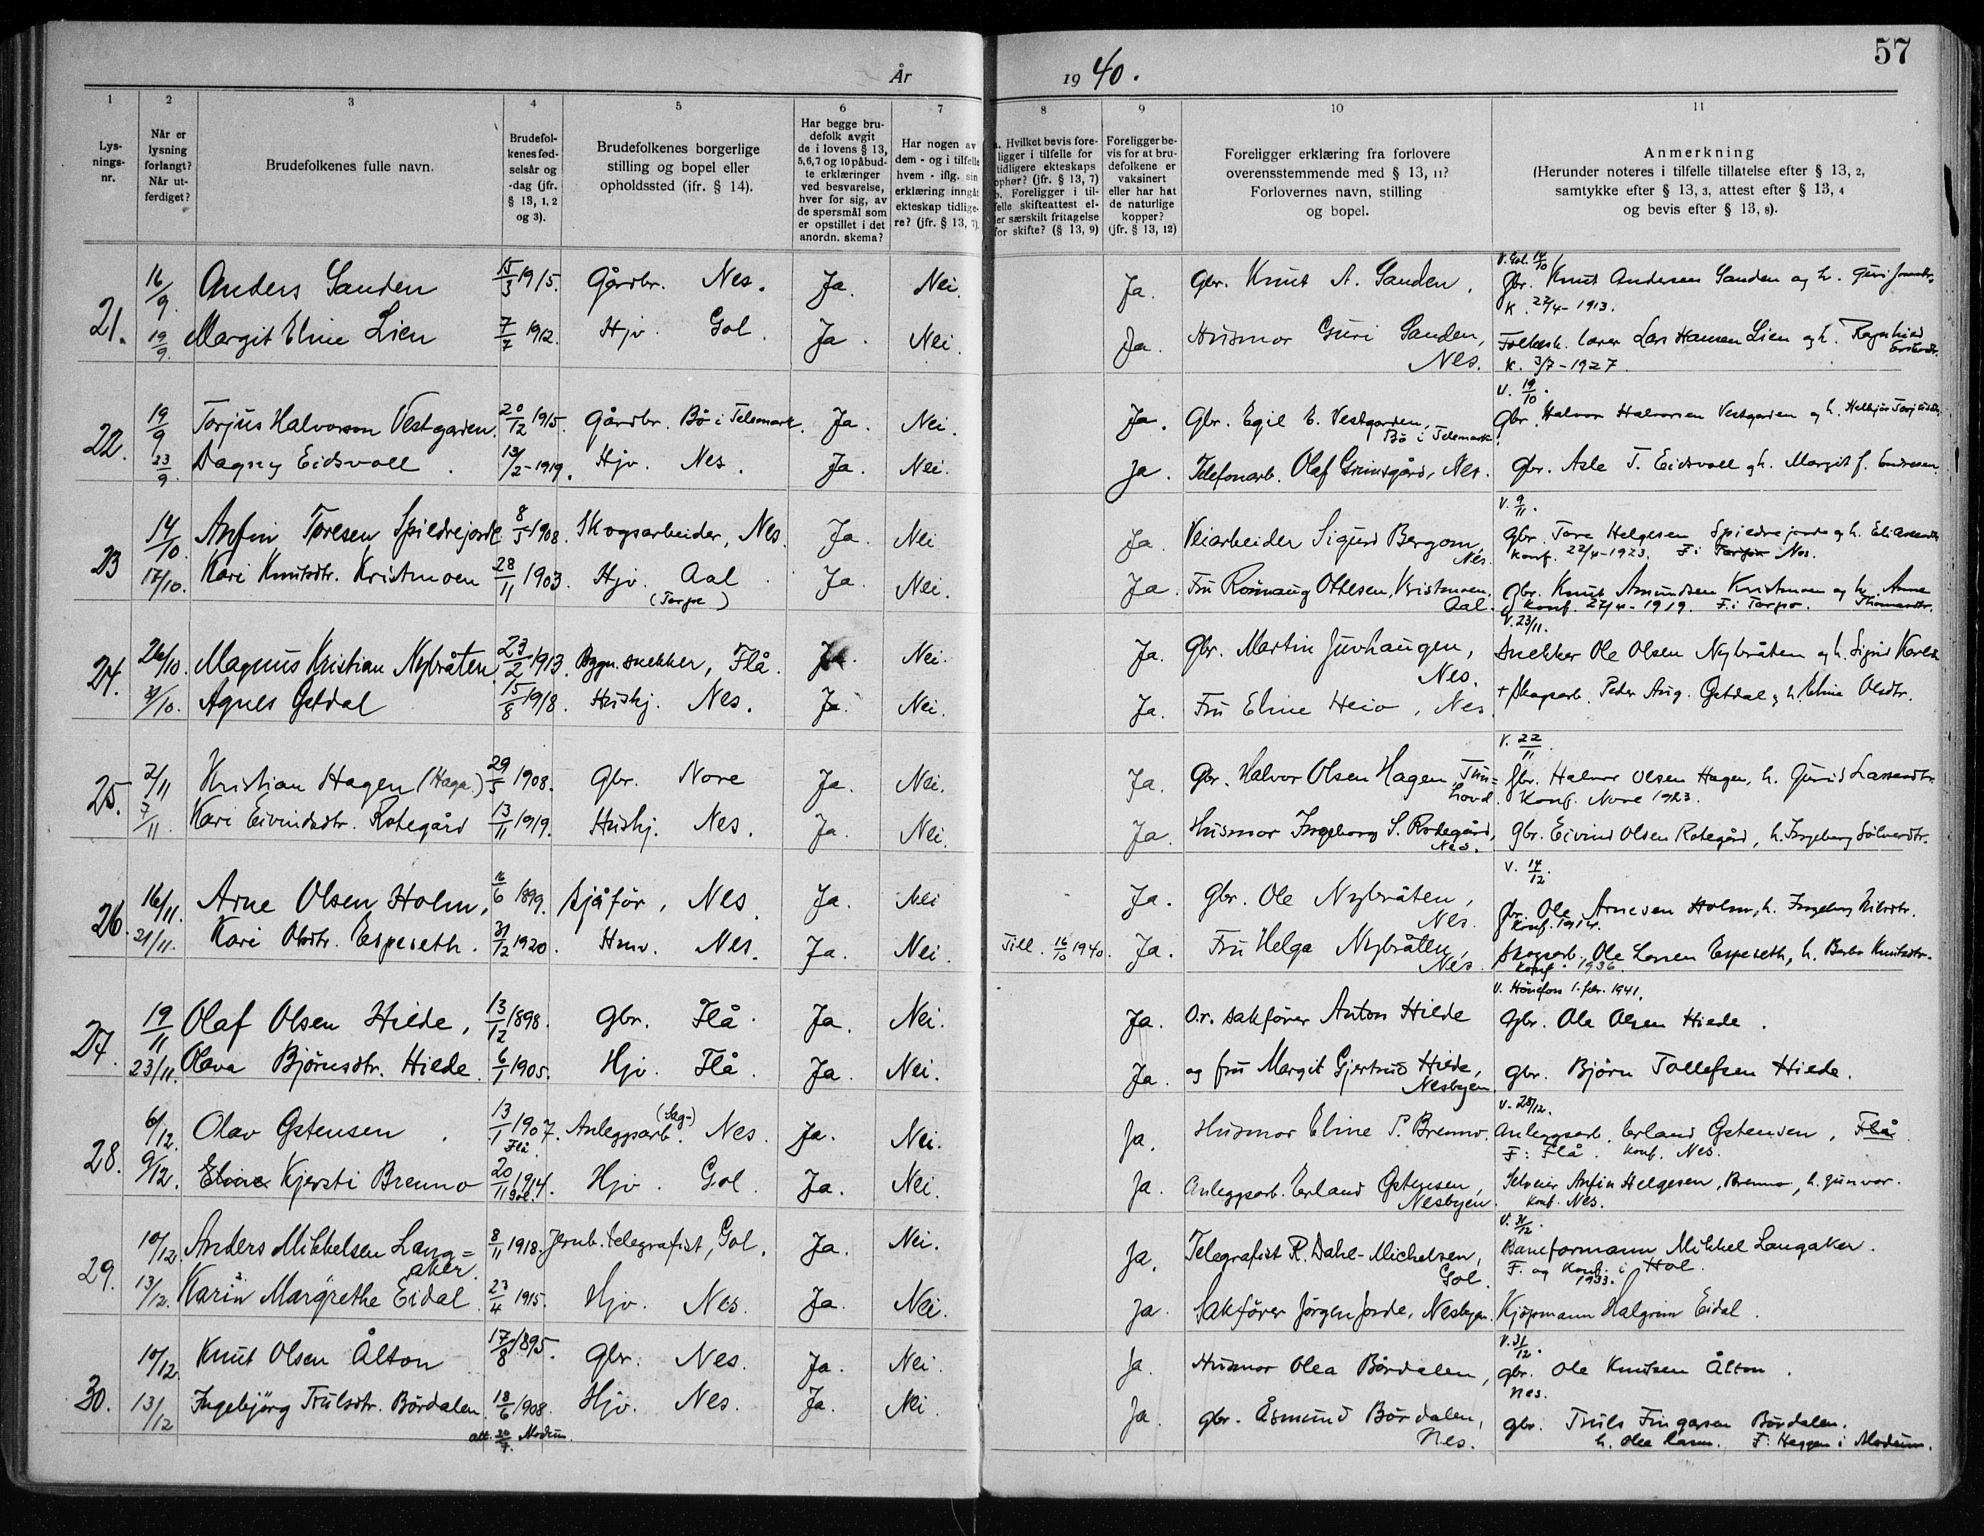 57
År 1940.
1 2 3 4 5 6 7 8 9 10 11
Lys-nings-nr.
Når er lysning forlangt? Når ut-ferdiget?
Brudefolkenes fulle navn.
Brudefol-kenes fød-selsår og -dag (jfr. § 13, 1, 2 og 3).
Brudefolkenes borgerlige stilling og bopel eller opholdssted (ifr. § 14).
Har begge bru-defolk avgit de i lovens § 13, 5,6,7 og 10 påbud-te erklæringer ved besvarelse, hver for sig, av de spørsmål som er opstillet i det anordn. skema?
Har nogen av dem - og i tilfelle hvem - iflg. sin erklæring inngåt ekteskap tidlige-re? (jfr. § 13, 7).
a. Hvilket bevis fore-ligger i tilfelle for tidligere ekteskaps ophør? (jfr. § 13, 7) b. Foreligger i til-felle skifteattest el-ler særskilt fritagelse for skifte? (§ 13, 9)
Foreligger be-vis for at bru-defolkene er vaksinert eller har hat de naturlige kopper? (jfr. § 13, 12)
Foreligger erklæring fra forlovere overensstemmende med § 13, 11? Forlovernes navn, stilling og bopel.
Anmerkning (Herunder noteres i tilfelle tillatelse efter § 13, 2, samtykke efter § 13, 3, attest efter § 13, 4 og bevis efter § 13, 8).
V. Gol. 14/10
21. 16/9. Anders Sanden 15/3 1915. Gårdbr. Nes. Ja. Nei. Ja. Gbr. Knut A. Sanden, Gbr. Knut Andersen Sanden og h. Guri
K. 27/4-1913.
19/9. Margit Eline Lien 7/7 1912. Hjv. Gol. Ja. Nei. Ja. Husmor Guri Sanden, Nes. Folkesk. lærer Lars Hansen Lien og h. Ragnhild
K. 3/7-1927.
V. 19/10.
22. 19/9 Torjus Halvorson Vestgarden. 20/12 1915. Gårdbr. Bø i Telemark. Ja. Nei. Ja. Gbr. Egil E. Vestgarden, Bø i Telemark. Gbr. Halvor Halvorsen Vestgarden og h.
23/9 Dagny Eidsvoll. 13/2-1919. Hjv. Nes. Ja. Nei. Ja. Telefonarb. Olaf Grimsgård, Nes. Gbr. Asle T. Eidsvoll og h. Margit J. Endresen.
V. 9/11.
23 14/10. Anfin Toresen Spildrejorde 8/5 1908. Skogsarbeider, Nes. Ja. Nei. Ja. Veiarbeider Sigurd Bergom, Nes. Gbr. Tore Helgesen Spildrejorde og h.
Konf. 22/4-1923. F. i Torpo Nes.
17/10. Kari Knutsdtr. Kristmoen 28/11 1903. Hjv. Aal (Torpo) Ja. Nei. Ja. Fru Rønnaug Ottesen, Kristmoen, Aal. Gbr. Knut Amundsen Kristmoen og h. Anne Thomasdtr.
Konf. 27/4-1919. F. i Torpo.
V. 23/11.
24. 26/10. Magnus Kristian Nybråten 23/2 1913. Bygn. snekker, Flå. Ja. Nei. Ja. Gbr. Martin Juvhaugen, Nes. Snekker Ole Olsen Nybråten og h. Sigrid
31/10. Agnes Gstdal 15/8 1918. Hushj. Nes. Ja. Nei. Ja. Fru Eline Heio, Nes. + Skogsarb. Peder Aug. Gstdal og h. Eline Olsdtr.
V. 22/11.
25. 2/11 Kristian Hagen (Haga.) 29/5 1908. Gbr. Nore Ja. Nei. Ja. Gbr. Halvor Olsen Hagen, Tun=hovd. Gbr. Halvor Olsen Hagen, h. Gunild Larsendtr.
Konf. Nore 1923.
7/11. Kari Eivindsdtr. Rotegård 13/11 1919. Hushj. Nes. Ja. Nei. Ja. Husmor Ingeborg S. Rotegård, Nes. Gbr. Eivind Olsen Rotegård, h. Ingeborg Sølverdtr.
V. 14/12.
26. 16/11. Arne Olsen Holm, 16/6 1899. Sjåfør, Nes. Ja. Nei Ja. Gbr. Ole Nybråten, Nes. Gbr. Ole Arnesen Holm, h. Ingeborg Nilsdtr.
Konf. 1914.
21/11. Kari Olsdtr. Espeseth. 31/12 1920. Hmv. Nes. Ja. Nei. Till. 16/10 1940. Ja. Fru Helga Nybråten, Nes. Skogsarb. Ole Larsen Espeseth, h. Barbo Knutsdtr.
Konf. 1936.
V. Hønefoss 1. febr. 1941.
27. 19/11 Olaf Olsen Hilde, 13/12 1898. Gbr. Flå. Ja. Nei. Ja. O.r. sakfører Anton Hilde Gbr. Ole Olsen Hilde.
23/11. Oleva Bjørnsdtr. Hilde. 6/1 1905. Hjv. Flå. Ja. Nei. Ja. og fru Margit Gjertrud Hilde, Nesbyen. Gbr. Bjørn Tollefsen Hilde.
V. 28/12.
28. 6/12. Olav Gstensen. 13/1 1907. Flå. Anleggsarb. (Sag-) Nes. Ja. Nei. Ja. Husmor Eline P. Brenno. Anleggsarb. Erland Gstensen, Flå.
F: Flå. Konf. Nes.
9/12. Eline Kjersti Brenno 20/11 1914. Gol. Hjv. Gol. Ja. Nei. Ja. Anleggsarb. Erland Gstensen, Nesbyen. Selveier Anfin Helgesen, Brenno, h. Gunvor.
Konf. Nes.
V. 31/12.
29. 10/12. Anders Mikkelsen Lang=aker. 8/11 1918. Jernb. telegrafist, Gol. Ja. Nei. Ja. Telegrafist R. Dahl-Michelsen, Gol. Baneformann Mikkel Langaker.
F. og Konf. i Hol. 1933.
13/12. Karin Margrethe Eidal 23/4 1915. Hjv. Nes. Ja. Nei. Ja. Sakfører Jørgen Jorde, Nesbyen. Kjøpmann Halgrim Eidal.
V. 31/12.
30. 10/12. Knut Olsen Ålton 17/8 1895. Gbr. Nes. Ja. Nei. Ja. Husmor Olea Børdalen, Gbr. Ole Knutsen Ålton. Nes.
13/12 Ingebjørg Trulsdtr. Børdalen. 18/6 1908. Hjv. Nes. Ja. Nei. Ja. Gbr. Åsmund Børdalen, Nes. Gbr. Truls Fingarsen Børdalen.
att. 20/7 Modum. h. Olea F: Heggen i Modum.